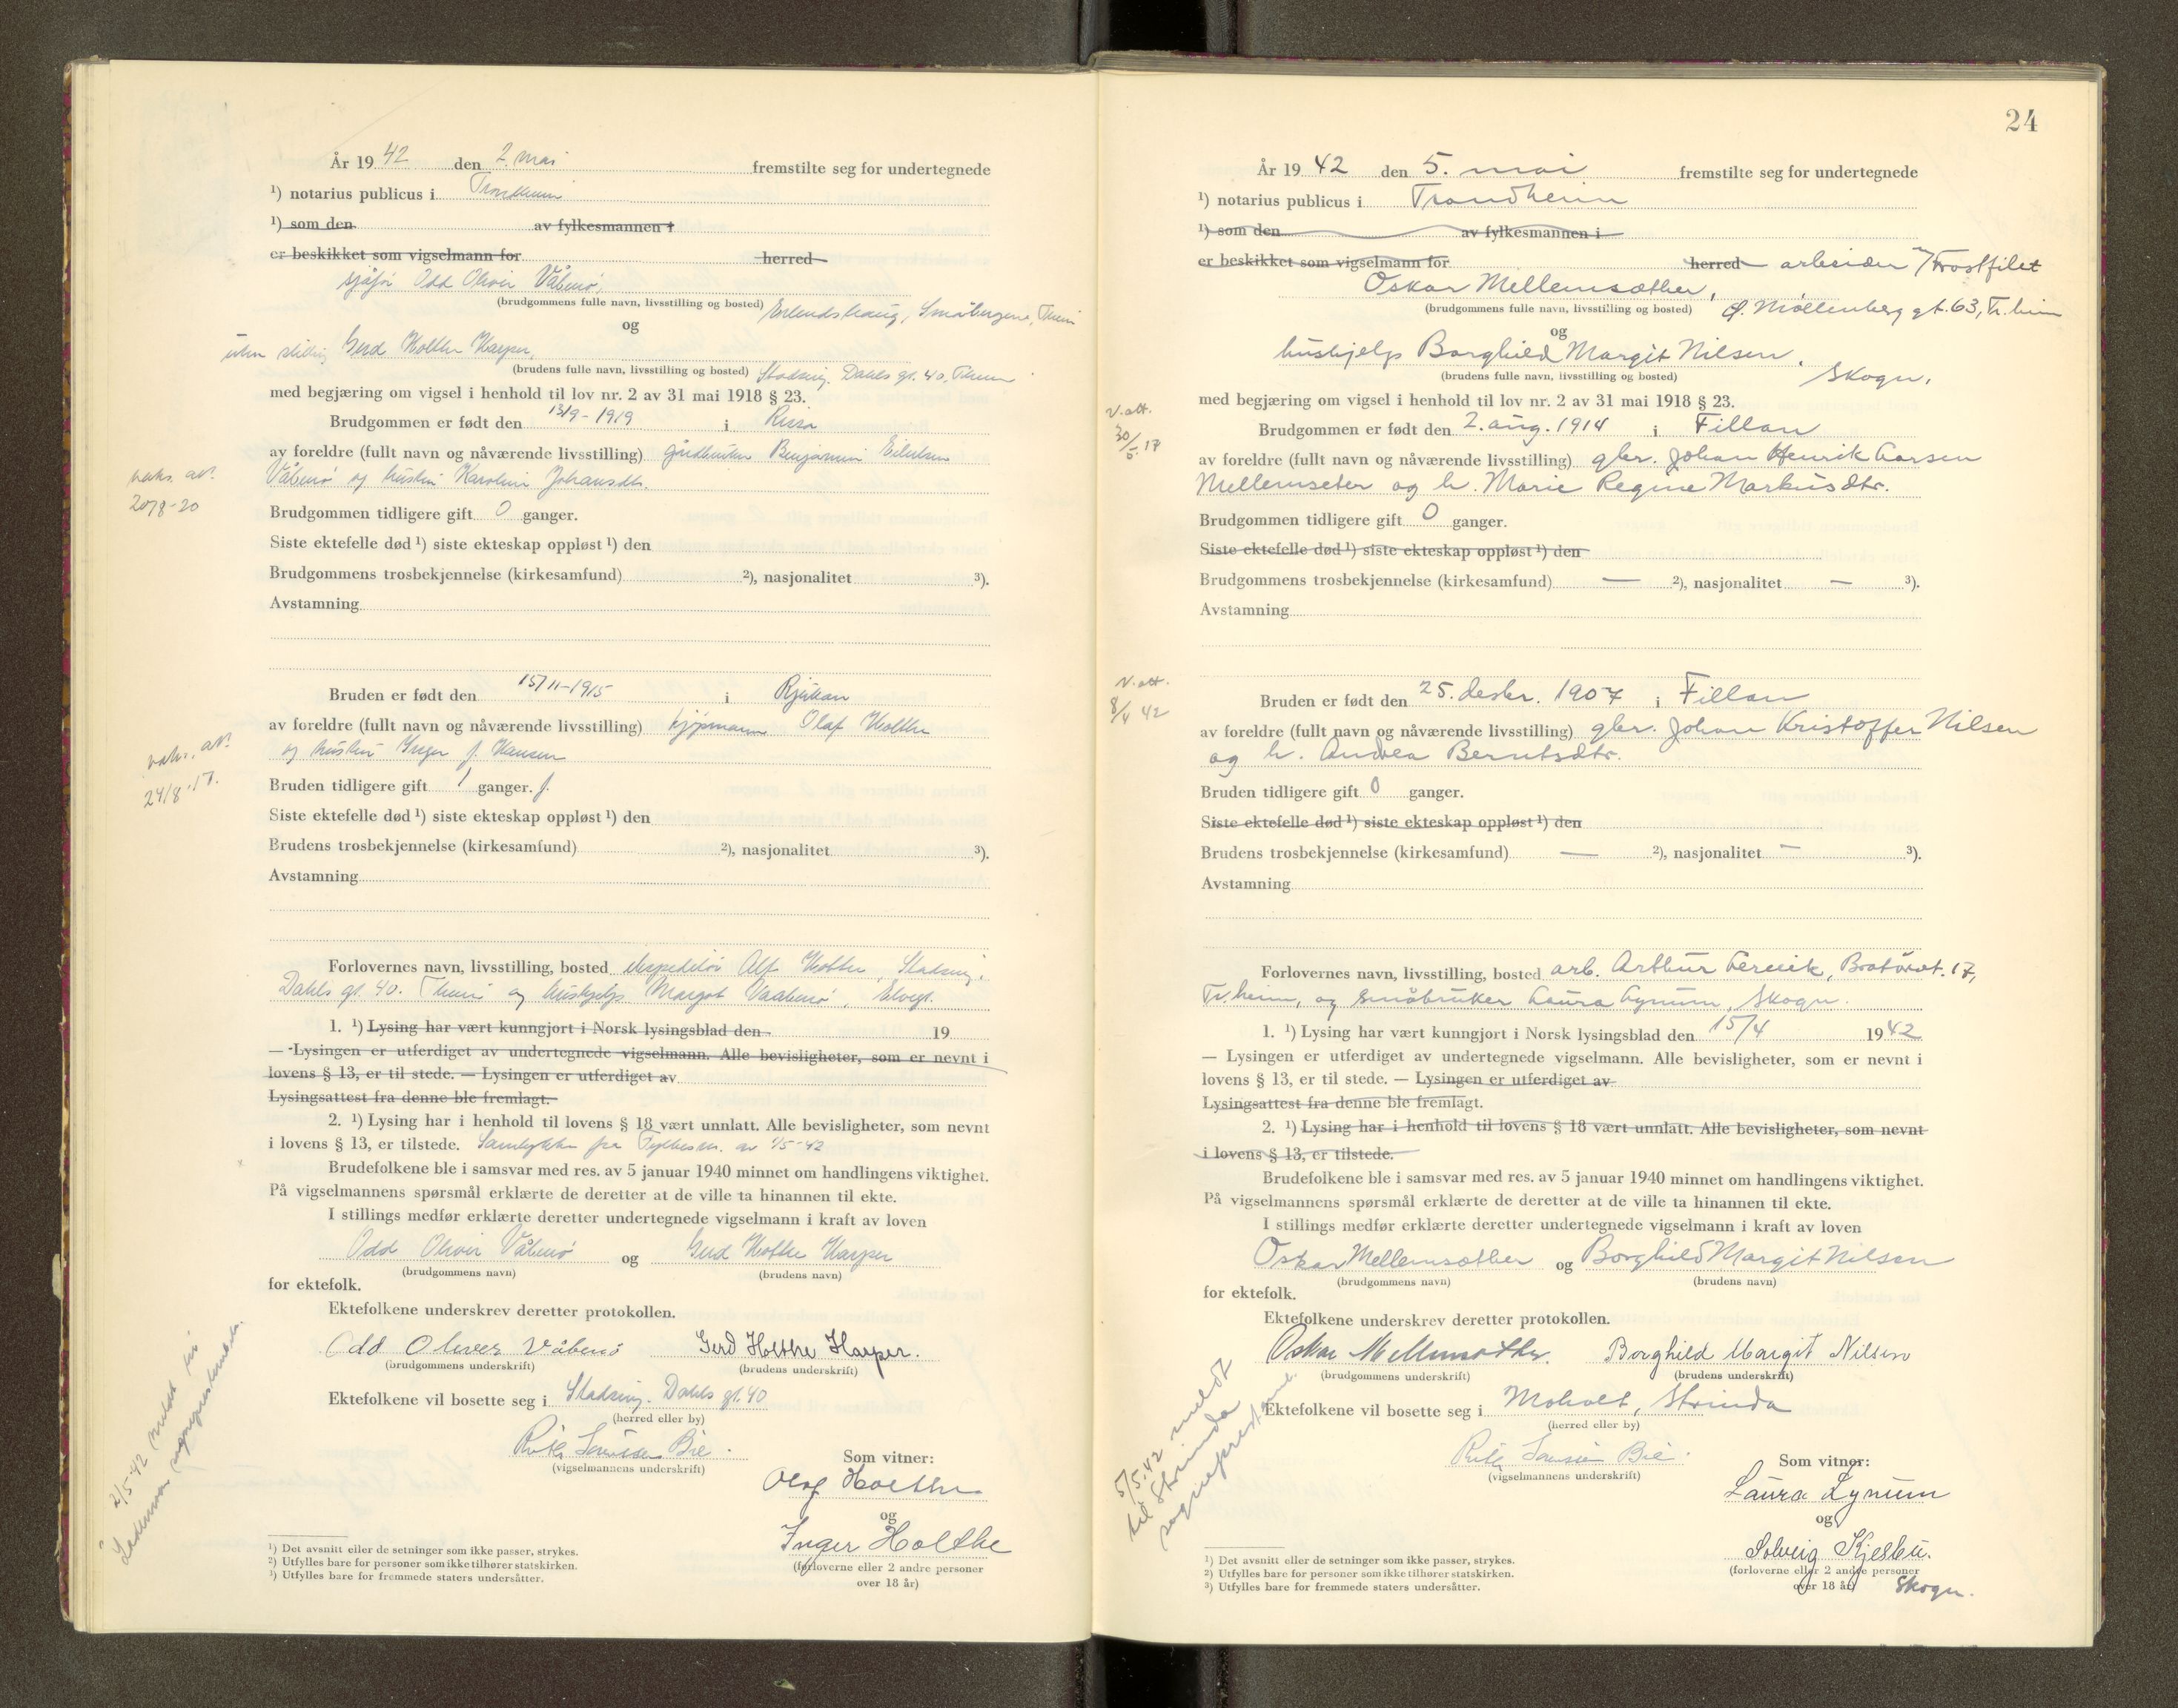 År 19 42 den 2. mai fremstilte seg for undertegnede
¹) notarius publicus i Trondheim
¹) som den av fylkesmannen i
er beskikket som vigselmann for herred
sjåfør Odd Oliver Våbenø,
(brudgommens fulle navn, livsstilling og bosted) Erlendshaug, Småbergene, Theim
og
uten stilling Gerd Holthe Harper,
(brudens fulle navn, livsstilling og bosted) Stadsing. Dahls gt. 40, Theim
med begjæring om vigsel i henhold til lov nr. 2 av 31 mai 1918 § 23.
Brudgommen er født den 13/9-1919 i Rissa
av foreldre (fullt navn og nåværende livsstilling) gårdbruker Benjamin Eilertsen
Våbenø og hustru Karoline Johansdtr.
vaks. att.
20/8-20
Brudgommen tidligere gift 0 ganger.
Siste ektefelle død ¹) siste ekteskap oppløst ¹) den
Brudgommens trosbekjennelse (kirkesamfund) ²), nasjonalitet ³).
Avstamning
Bruden er født den 15/11-1915 i Rjukan
av foreldre (fullt navn og nåværende livsstilling) kjøpmann Olaf Holthe
og hustru Inger f. Hansen
vaks. att.
24/8-17.
Bruden tidligere gift 1 ganger. f.
Siste ektefelle død ¹) siste ekteskap oppløst ¹) den
Brudens trosbekjennelse (kirkesamfund) ²), nasjonalitet ³).
Avstamning
Forlovernes navn, livsstilling, bosted ekspeditør Alf Holthe, Stadsing.
Dahls gt. 40. Theim og hushjelp Margot Vaabenø, Elvegt.
1. ¹) Lysing har vært kunngjort i Norsk lysingsblad den 19
— Lysingen er utferdiget av undertegnede vigselmann. Alle bevisligheter, som er nevnt i
lovens § 13, er til stede. — Lysingen er utferdiget av
Lysingsattest fra denne ble fremlagt.
2. ¹) Lysing har i henhold til lovens § 18 vært unnlatt. Alle bevisligheter, som nevnt
i lovens § 13, er tilstede. Samtykke fra Fylkesm. av 1/5-42
Brudefolkene ble i samsvar med res. av 5 januar 1940 minnet om handlingens viktighet.
På vigselmannens spørsmål erklærte de deretter at de ville ta hinannen til ekte.
I stillings medfør erklærte deretter undertegnede vigselmann i kraft av loven
Odd Oliver Våbenø og Gerd Holthe Harper
(brudgommens navn) (brudens navn)
for ektefolk.
Ektefolkene underskrev deretter protokollen.
Odd Oliver Våbenø Gerd Holthe Harper.
(brudgommens underskrift) (brudens underskrift)
Ektefolkene vil bosette seg i Stadsing. Dahls gt. 40
(herred eller by)
Bie.
(vigselmannens underskrift)
Som vitner:
Olaf Holthe
og
Inger Holthe
(forloverne eller 2 andre personer
over 18 år)
2/5-42 meldt til
Lademoen sogneprestembede.
¹) Det avsnitt eller de setninger som ikke passer, strykes.
²) Utfylles bare for personer som ikke tilhører statskirken.
³) Utfylles bare for fremmede staters undersåtter.
24
År 19 42 den 5. mai fremstilte seg for undertegnede
¹) notarius publicus i Trondheim
¹) som den av fylkesmannen i
er beskikket som vigselmann for herred arbeider v/Frostfilet
Oskar Mellemsæther,
(brudgommens fulle navn, livsstilling og bosted) Ø. Møllenberg gt. 63, Tr.heim
og
hushjelp Borghild Margit Nilsen,
(brudens fulle navn, livsstilling og bosted) Skogn.
med begjæring om vigsel i henhold til lov nr. 2 av 31 mai 1918 § 23.
V. att.
30/5 17
Brudgommen er født den 2. aug. 1914 i Fillan
av foreldre (fullt navn og nåværende livsstilling) gbr. Johan Henrik Larsen
Mellemseter og h. Marie Regine Markusdtr.
Brudgommen tidligere gift 0 ganger.
Siste ektefelle død ¹) siste ekteskap oppløst ¹) den
Brudgommens trosbekjennelse (kirkesamfund) — ²), nasjonalitet — ³).
Avstamning
V. att.
8/4 42
Bruden er født den 25. desbr. 1907 i Fillan
av foreldre (fullt navn og nåværende livsstilling) gbr. Johan Kristoffer Nilsen
og h. Andrea Berntsdtr.
Bruden tidligere gift 0 ganger.
Siste ektefelle død ¹) siste ekteskap oppløst ¹) den
Brudens trosbekjennelse (kirkesamfund) — ²), nasjonalitet — ³).
Avstamning
Forlovernes navn, livsstilling, bosted arb. Arthur Lervik, Bratørvt. 17,
Tr.heim, og småbruker Laura Lynum, Skogn.
1. ¹) Lysing har vært kunngjort i Norsk lysingsblad den 15/4 19 42
— Lysingen er utferdiget av undertegnede vigselmann. Alle bevisligheter, som er nevnt i
lovens § 13, er til stede. — Lysingen er utferdiget av
Lysingsattest fra denne ble fremlagt.
2. ¹) Lysing har i henhold til lovens § 18 vært unnlatt. Alle bevisligheter, som nevnt
i lovens § 13, er tilstede.
Brudefolkene ble i samsvar med res. av 5 januar 1940 minnet om handlingens viktighet.
På vigselmannens spørsmål erklærte de deretter at de ville ta hinannen til ekte.
I stillings medfør erklærte deretter undertegnede vigselmann i kraft av loven
Oskar Mellemsæther og Borghild Margit Nilsen
(brudgommens navn) (brudens navn)
for ektefolk.
Ektefolkene underskrev deretter protokollen.
Oskar Mellemsæther. Borghild Margit Nilsen
(brudgommens underskrift) (brudens underskrift)
Ektefolkene vil bosette seg i Moholt, Strinda
(herred eller by)
Bie.
(vigselmannens underskrift)
Som vitner:
Laura Lynum
og
Solveig Kjesbu.
(forloverne eller 2 andre personer
over 18 år) Skogn.
5/5.42 meldt
til Strinda
sogneprestemb.
¹) Det avsnitt eller de setninger som ikke passer, strykes.
²) Utfylles bare for personer som ikke tilhører statskirken.
³) Utfylles bare for fremmede staters undersåtter.